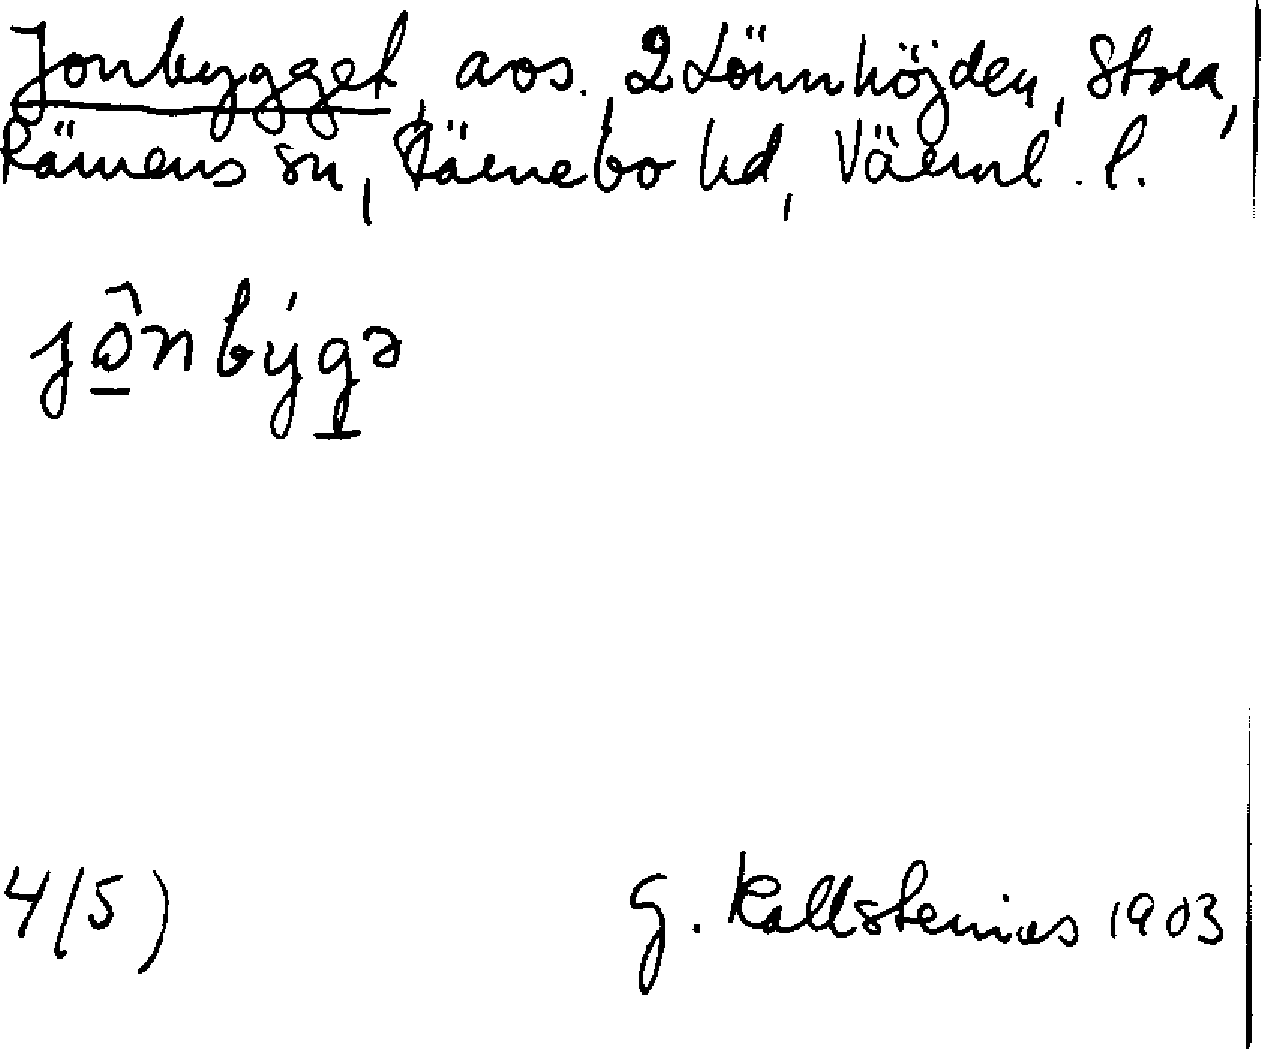 Jonbygget, avs. 2 Lönnhöjden, Stora,
Rämens sn, Färnebo hd, Värml. l.
jô̱nbýg̱ə
4/5)
G. Kallstenius 1903